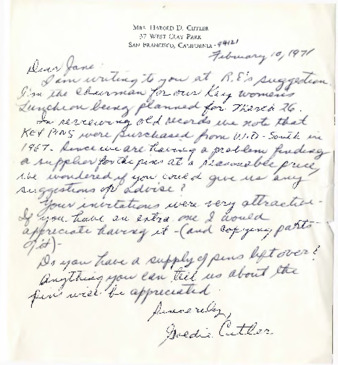 Mrs. Harold D. Cutler
37 West Clay Park
San Francisco, California - 94121
February 10, 1971
Dear Jane:
I am writing to you at R.E.'s suggestion
I'm the chairman for our Key Women's
Luncheon being planned for March 26.
In reviewing old records we note that
KEY PINS were purchased from W.D. - South in
1967. Since we are having a problem finding
a supplier for the pins at a reasonable price,
we wondered if you could give us any
suggestions or advise?
Your invitations were very attractive -
If you have an extra one I would
appreciate having it - (and copying parts
of it) -
Do you have a supply of pins left over?
Anything you can tell us about the
pin will be appreciated.
Sincerely,
Goldie Cutler